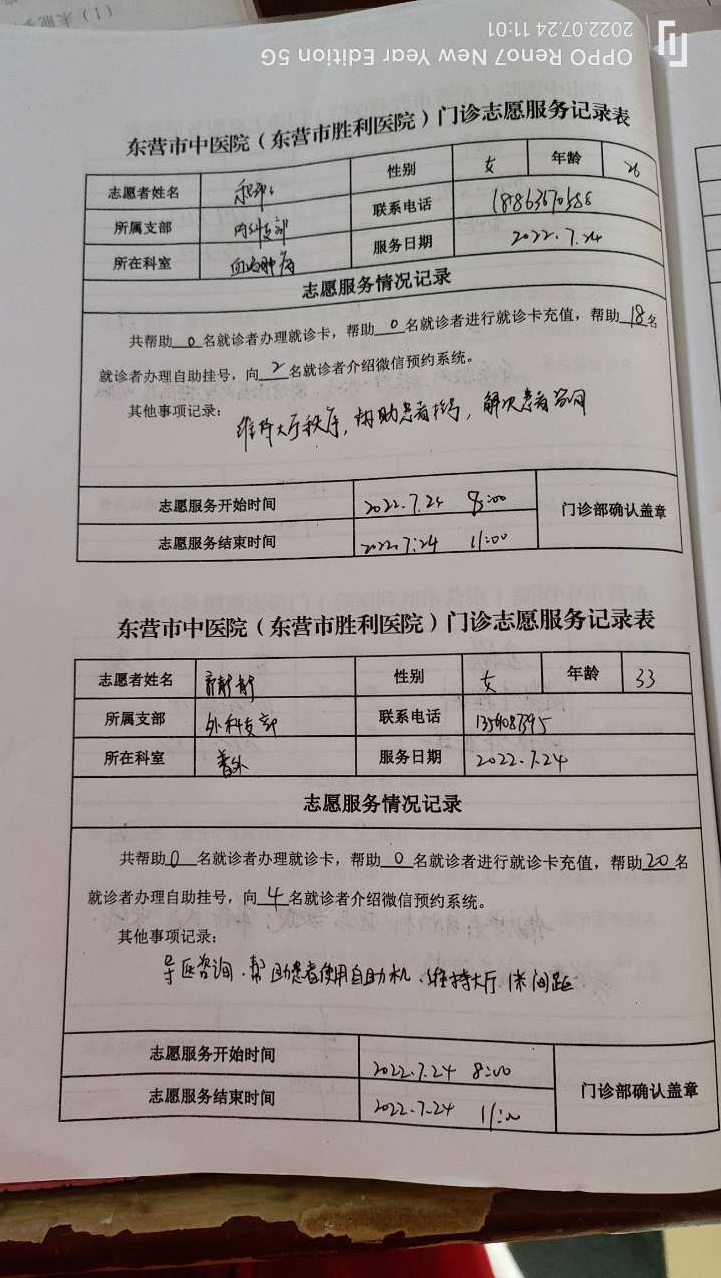 OPPO Reno7 New Year Edition 5G
2022.07.24 11:01
东营市中医院（东营市胜利医院）门诊志愿服务记录表
志愿者姓名 性别 女 年龄 26
所属支部 内科支部 联系电话 18863670588
所在科室 血液肿病 服务日期 2022.7.24
志愿服务情况记录
共帮助0名就诊者办理就诊卡，帮助0名就诊者进行就诊卡充值，帮助18名
就诊者办理自助挂号，向2名就诊者介绍微信预约系统。
其他事项记录：
维持大厅秩序，协助患者挂号，解决患者咨问
志愿服务开始时间 2022.7.24 8:00 门诊部确认盖章
志愿服务结束时间 2022.7.24 11:00
东营市中医院（东营市胜利医院）门诊志愿服务记录表
志愿者姓名 性别 女 年龄 33
所属支部 外科支部 联系电话
所在科室 普外 服务日期 2022.7.24
志愿服务情况记录
共帮助0名就诊者办理就诊卡，帮助0名就诊者进行就诊卡充值，帮助20名
就诊者办理自助挂号，向4名就诊者介绍微信预约系统。
其他事项记录：
导医咨询、帮助患者使用自助机、维持大厅1米间距
志愿服务开始时间 2022.7.24 8:00 门诊部确认盖章
志愿服务结束时间 2022.7.24 11:00